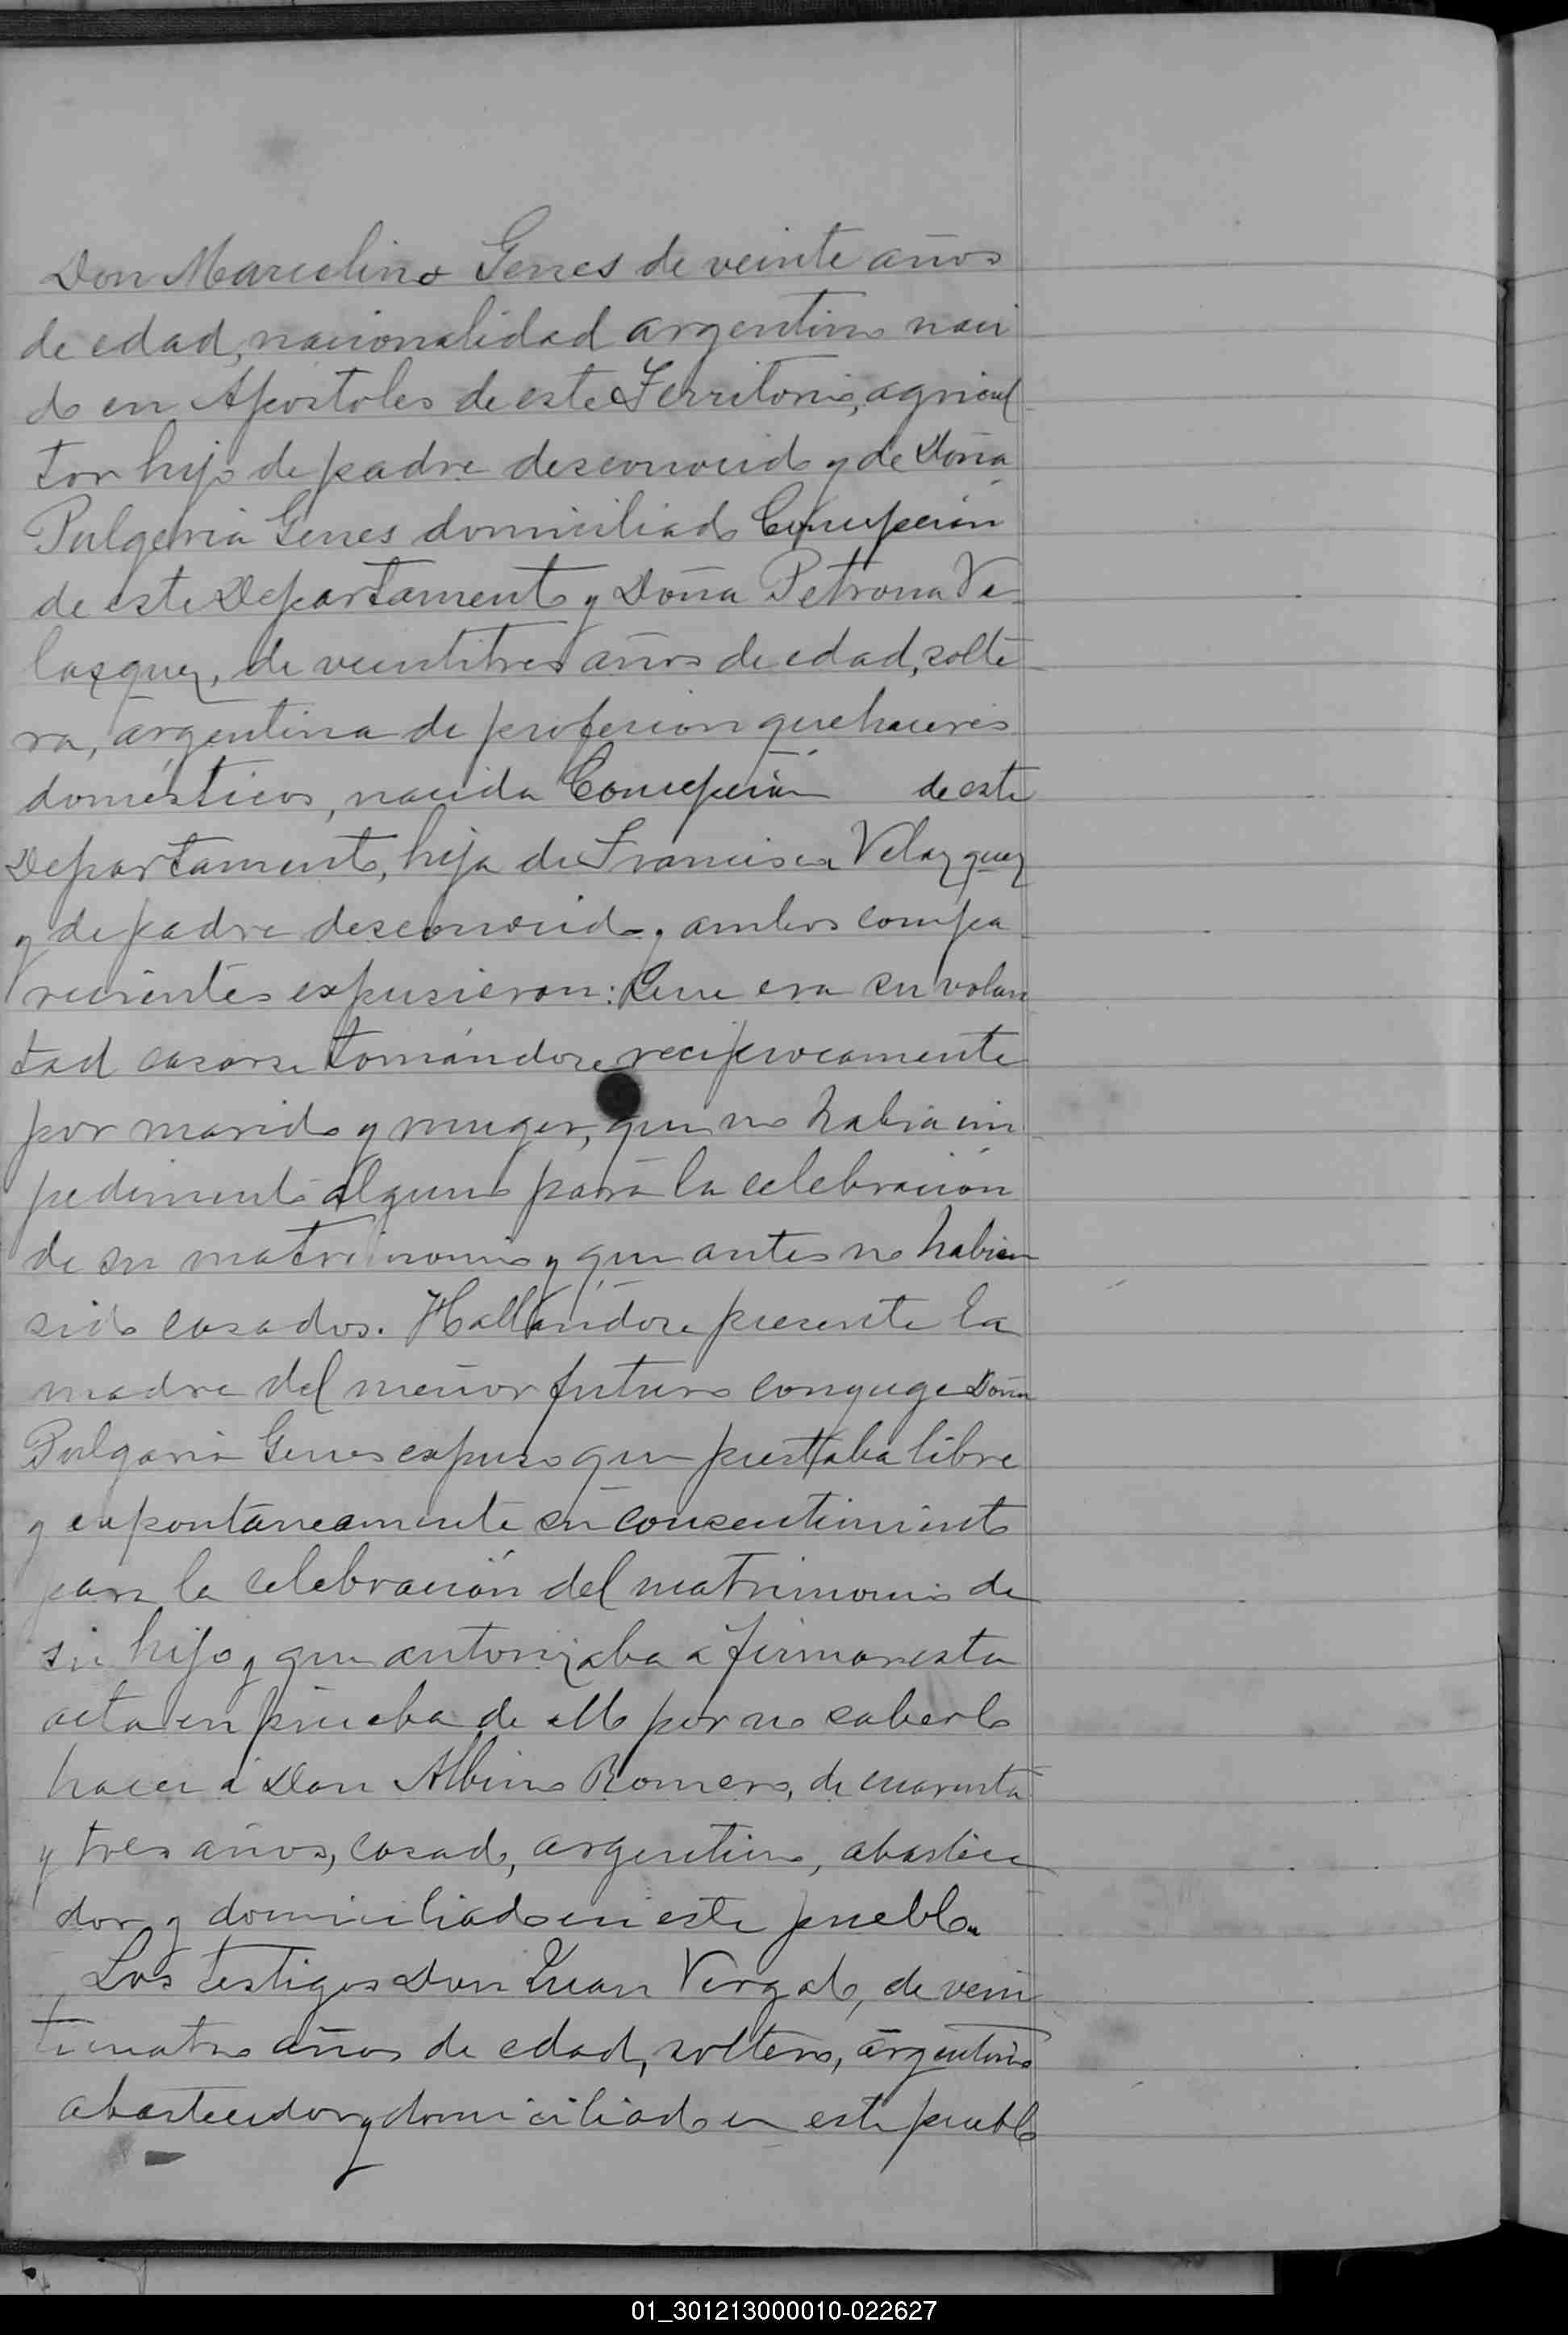 Don Marcelino Genes de veinte años
de edad, nacionalidad argentino naci
do en Apostoles de este Territorio, agricul
tor hijo de padre desconocido y de Doña
Pulgeria Genes domiciliado Concepción
de este Departamento y Doña Petrona Ve
lasquez, de veintitres años de edad, solte
ra, argentina de profesion quehaceres
domésticos, nacida Concepción de este
Departamento, hija de Francisca Velazquez
y de padre desconocido, y ambos compa
recientes expusieron: Que era su volun
tad casarse tomándose reciprocamente
por marido y muger, que no habia im
pedimento alguno para la celebración
de su matrimonio y que antes no habian
sido casados. Hallándose presente la
madre del menor futuro conyuge Doña
Pulgaria Genes expuso que prestaba libre
y espontaneamente su consentimiento
para la celebración del matrimonio de
su hijo y que autorizaba a firmar esta
acta en prueba de ello por no saberlo
hacer á Don Albino Romero, de cuarenta
y tres años, casado, argentino, abastece
dor y domiciliado en este pueblo.
Los testigos Don Juan Vergado, de vein
ticuatro años de edad, soltero, argentino
abastecedor y domiciliado en este pueblo
01_301213000010-022627